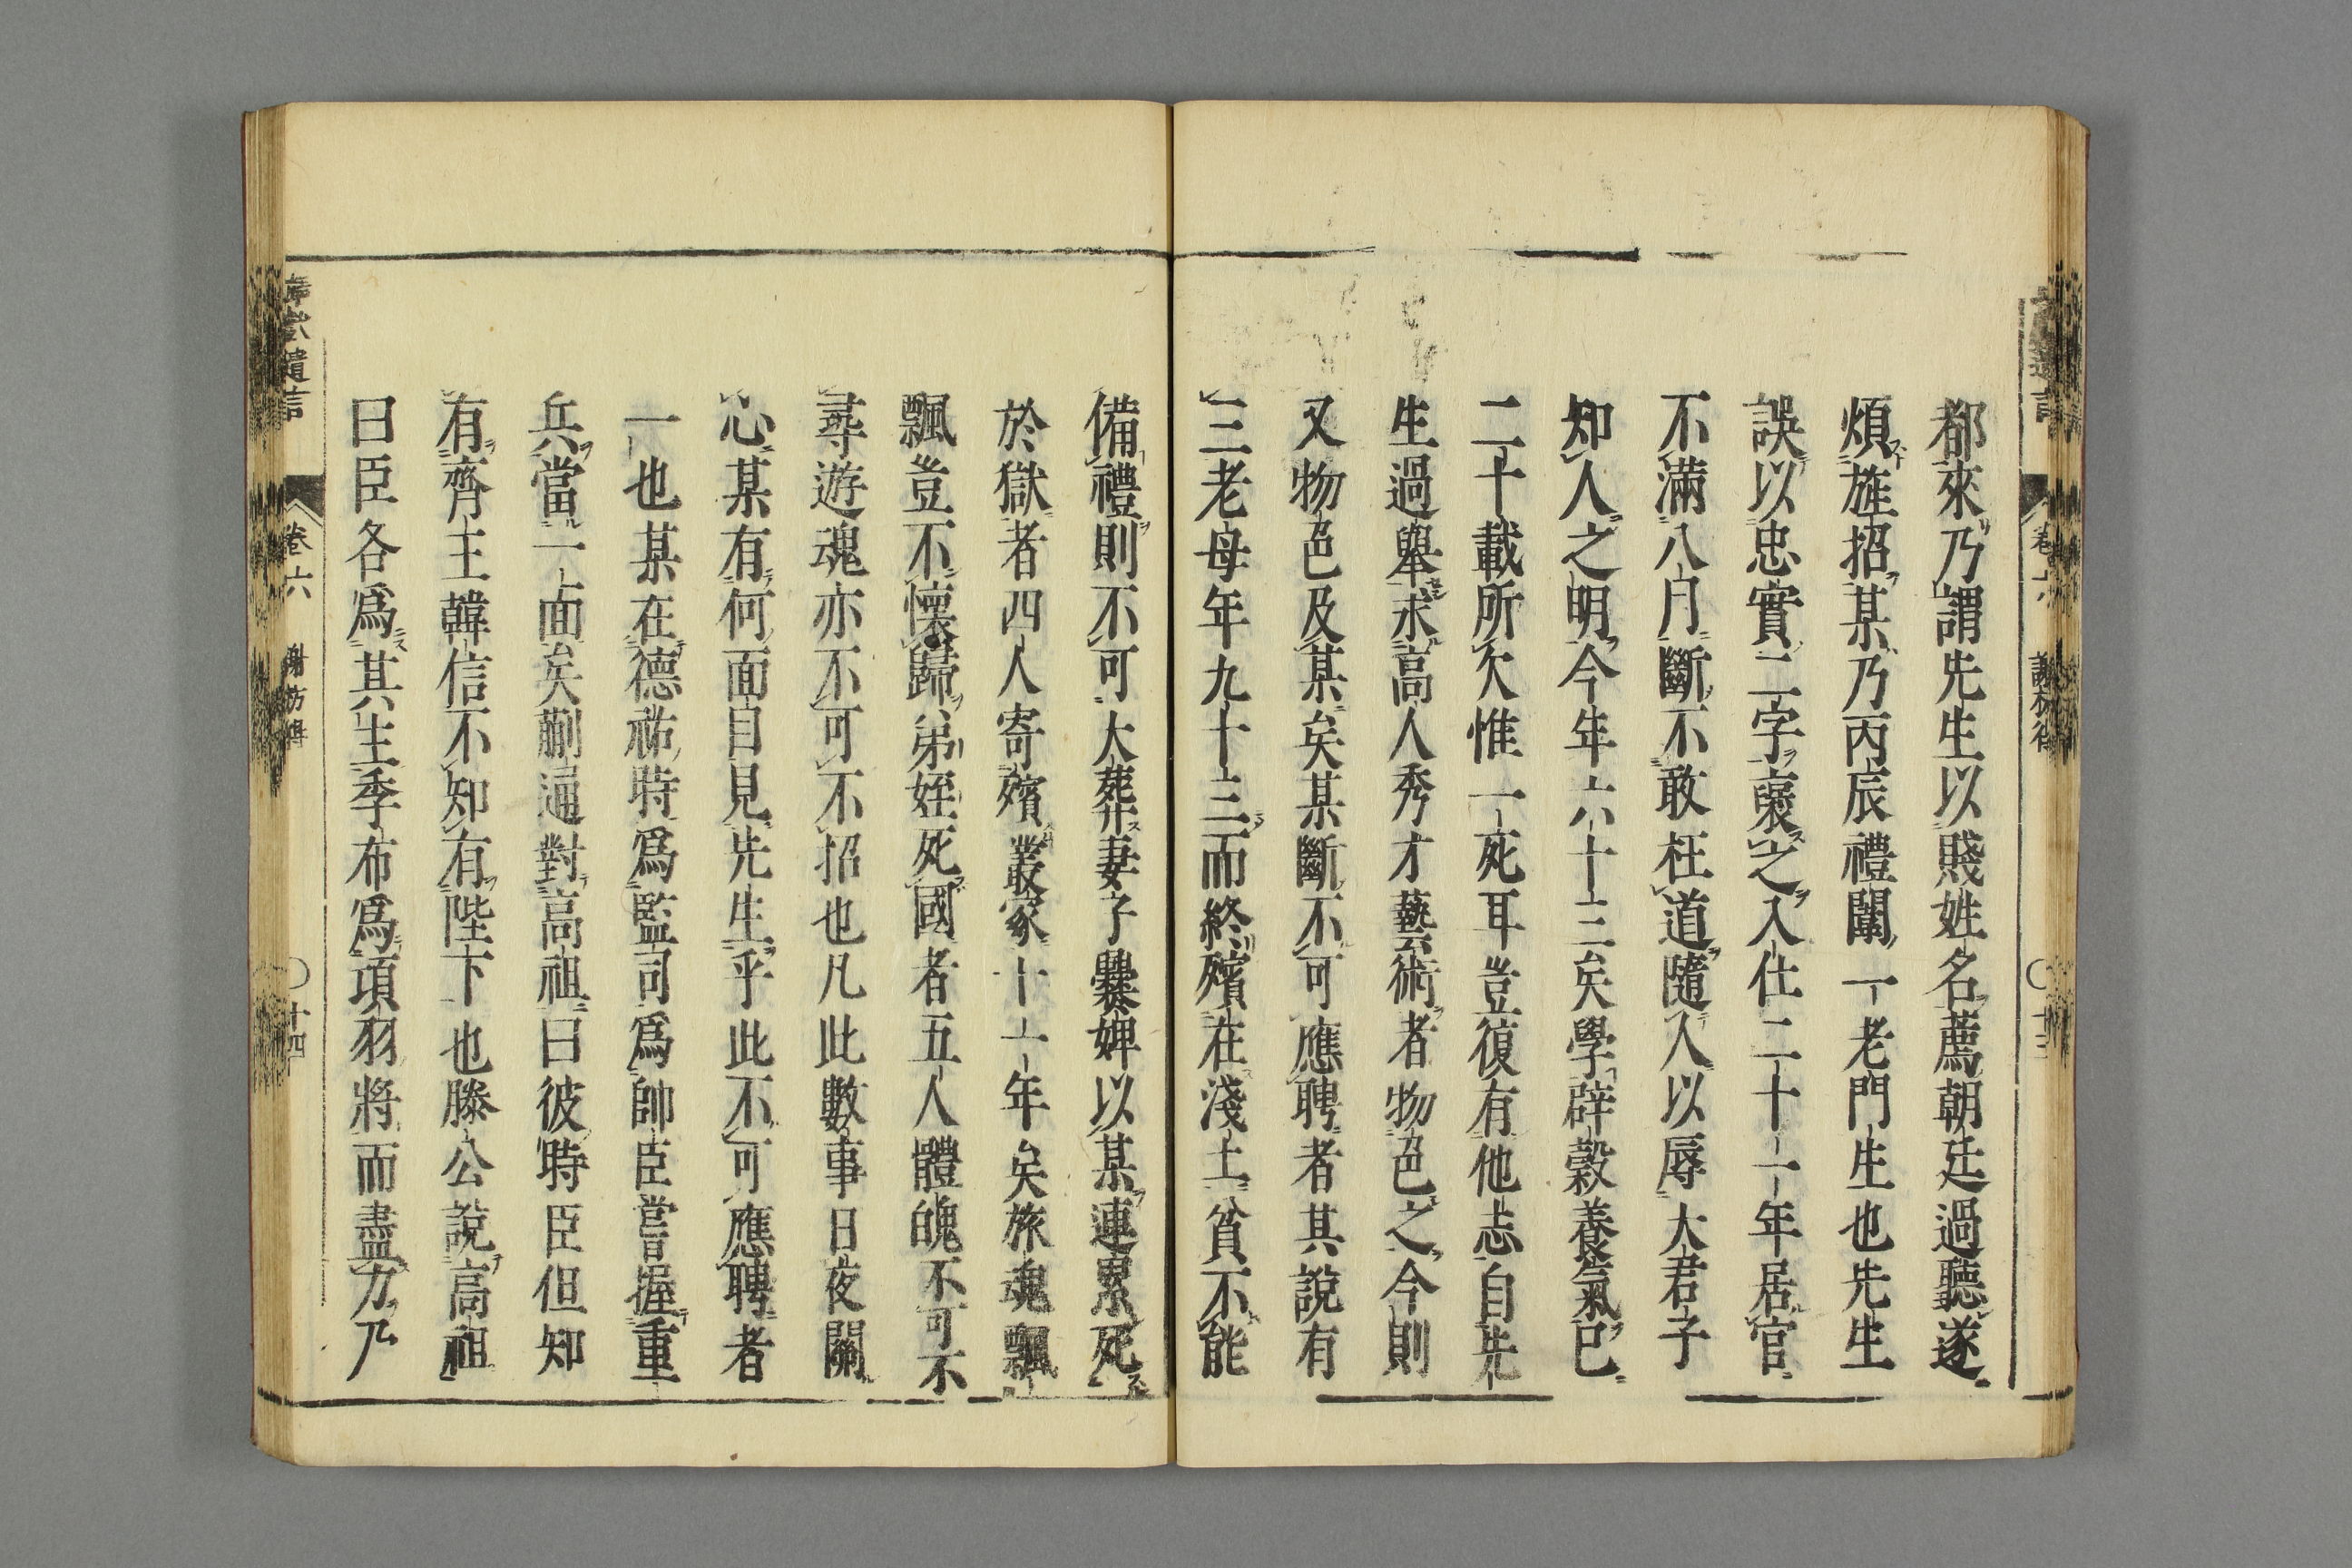 都來乃謂先生以賤姓名薦朝廷過聽遂
煩旌招某乃丙辰禮闈一老門生也先生
誤以忠實二字褒之入仕二十一年居官
不滿八月斷不敢枉道隨人以辱大君子
知人之明今年六十三矣學辟穀養氣已
二十載所欠惟一死耳豈復有他志自先
生過舉求高人秀才藝術者物色之今則
又物色及某矣某斷不可應聘者其說有
三老母年九十三而終殯在淺土貧不能
備禮則不可大葬妻子爨婢以某連累死
於獄者四人寄殯叢冢十一年矣旅魂飄
飄豈不懷歸弟姪死國者五人體魄不可不
尋遊魂亦不可不招也凡此數事日夜關
心某有何面目見先生乎此不可應聘者
一也某在德祐時爲監司爲帥臣嘗握重
兵當一面矣蒯通對高祖曰彼時臣但知
有齊王韓信不知有陛下也滕公說高祖
曰臣各爲其主季布爲項羽將而盡力乃
遺言 卷六 謝枋得 〇十四